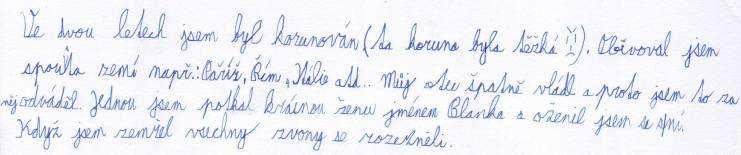 Ve dvou letech jsem byl korunován (ta koruna byla těžká ). Obřvoval jsem
spousta zemí např.: Paříž, Řím, Itálie atd.. Můj otec špatně vládl a proto jsem to za
něj odváděl. Jednou jsem potkal krásnou ženu jménem Blanka a oženil jsem se s ní.
Když jsem zemřel všechny zvony se rozezněli.